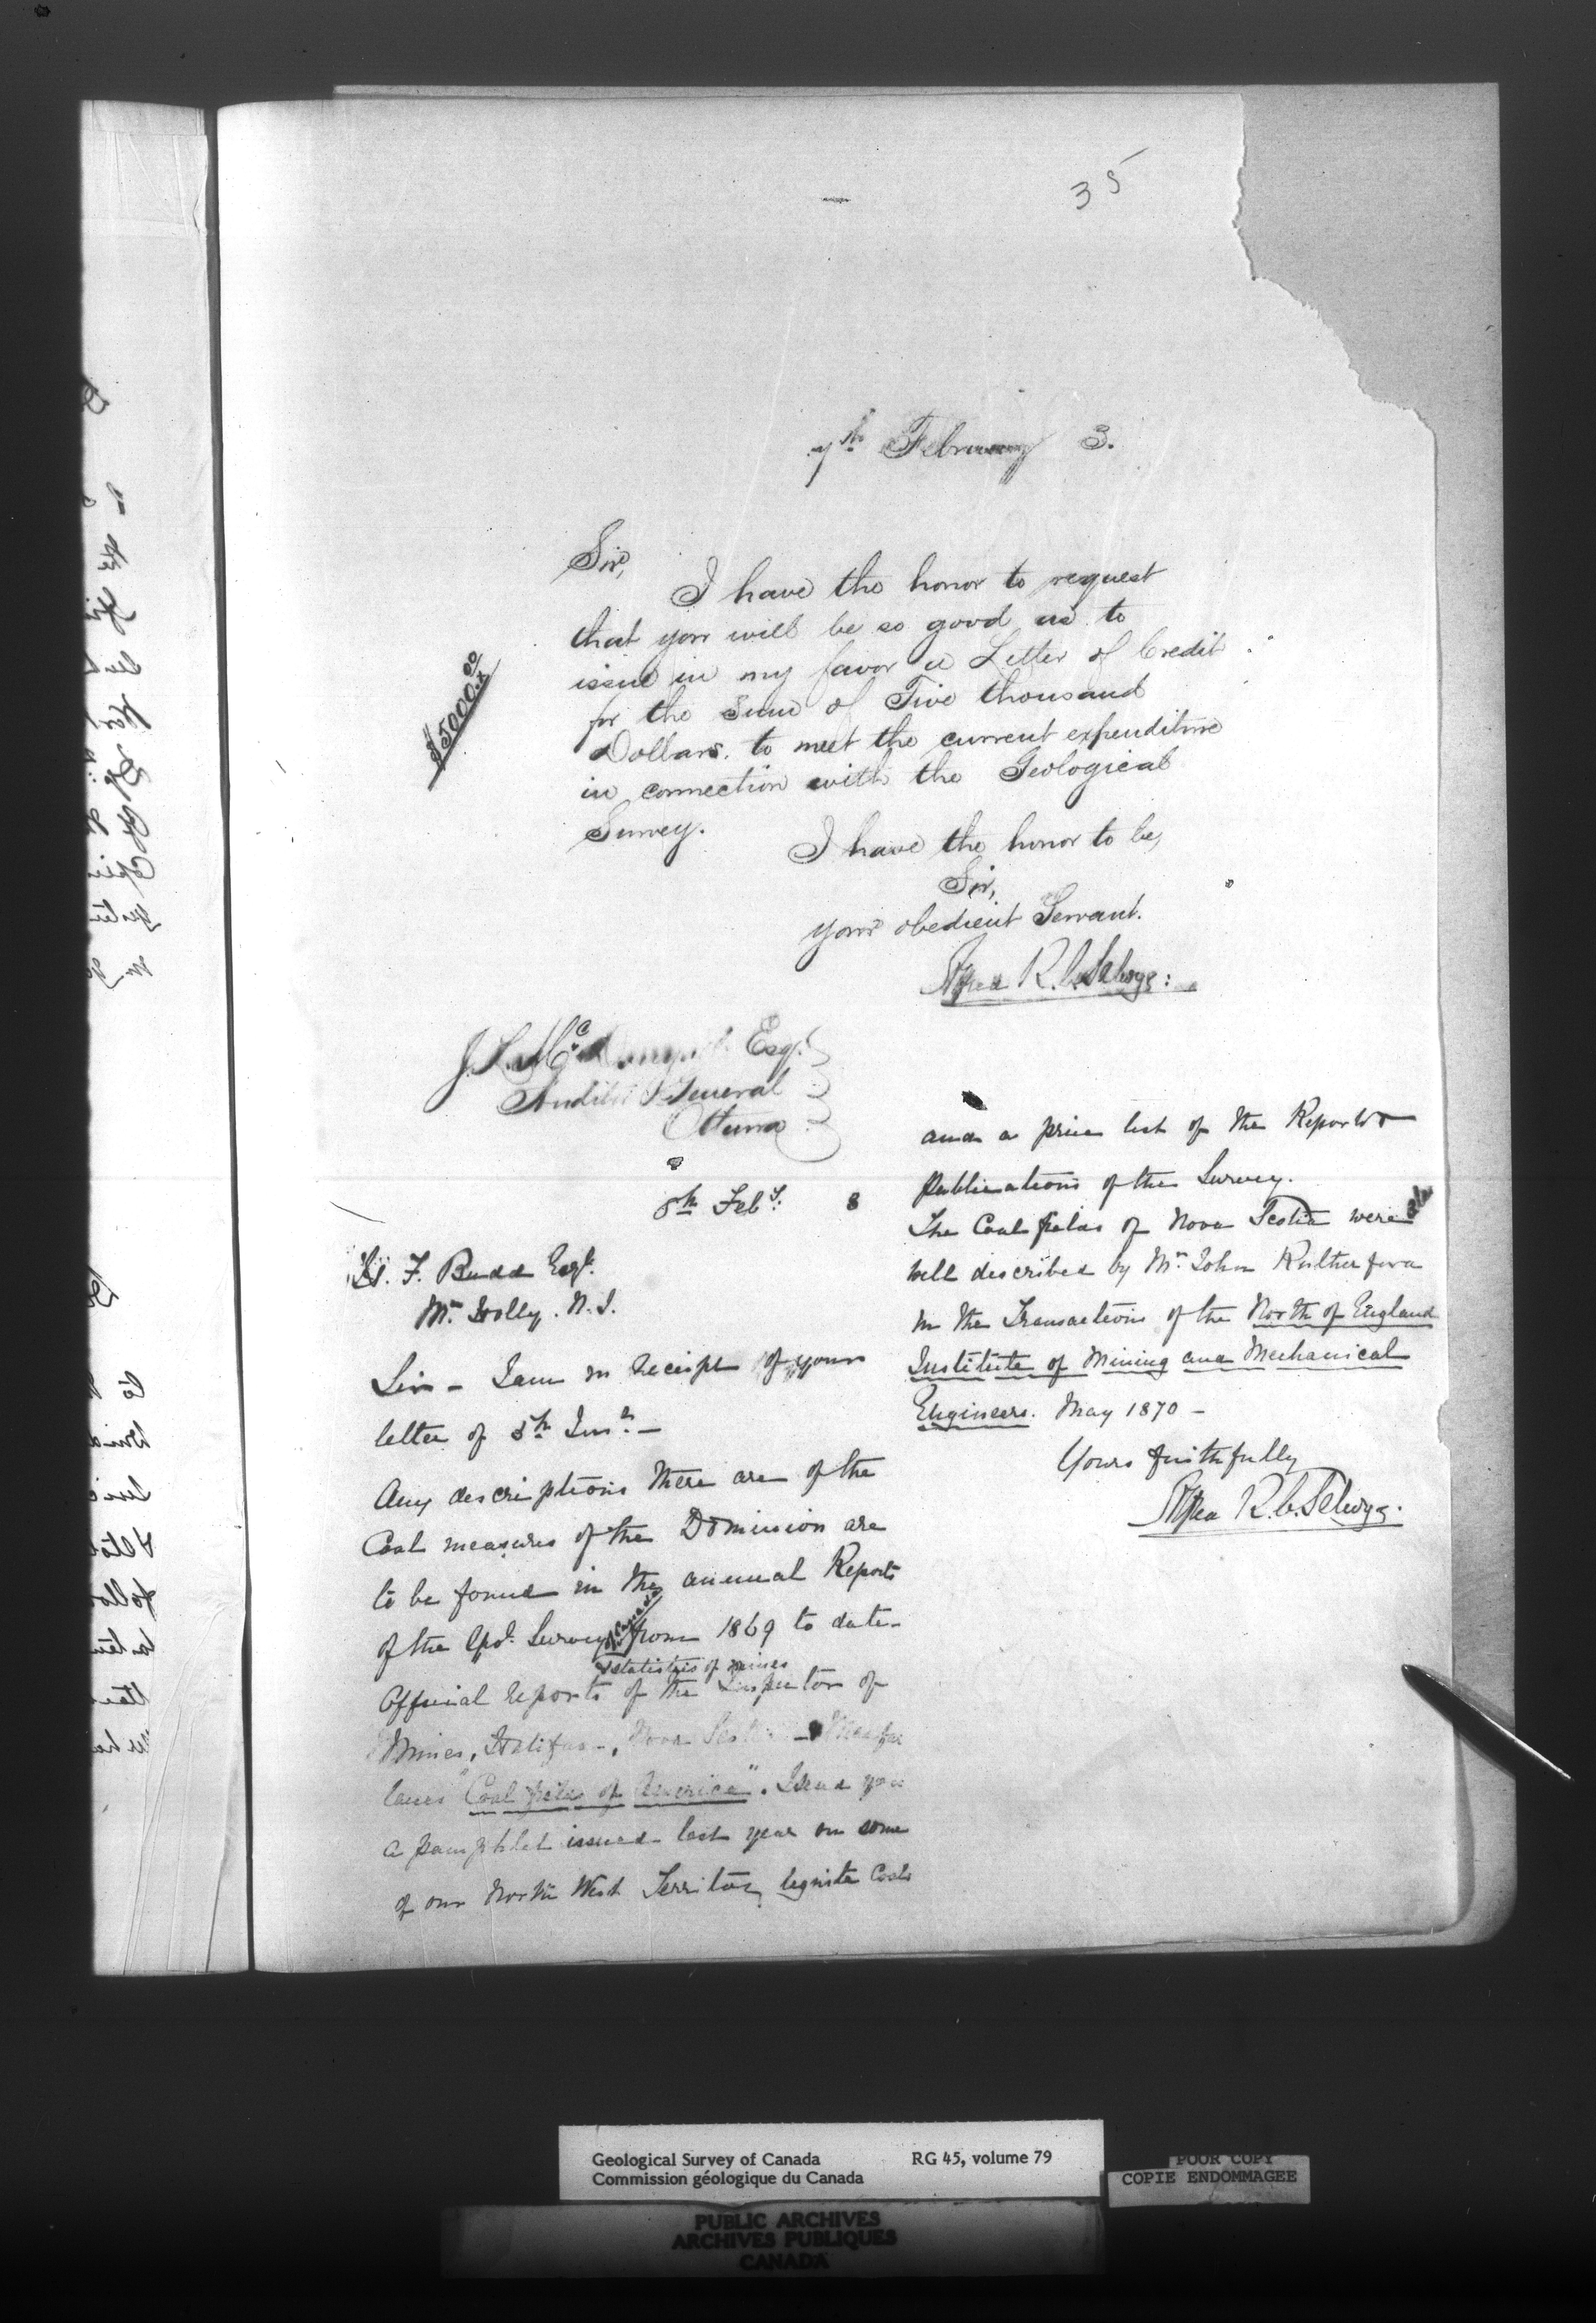 35
7th February 3.
Sir,
I have the honor to request
that you will be so good as to
issue in my favor a Letter of Credit
for the Sum of Five thousand
Dollars, to meet the current expenditure
in connection with the Geological
Survey.
$5000.00
I have the honor to be,
Sir,
your obedient Servant.
Alfred R. C. Selwyn
J. L. Mc Esqr.
Auditor General
Ottawa
8th Feby. 3
F. Budd Esqr.
Mt. Holly. N.J.
Sir - I am in receipt of yours
letter of 5th Inst. -
Any descriptions there are of the
Coal measures of the Dominion are
to be found in the annual Reports
of the Geol. Survey of Canada from 1869 to date -
& statistics of mines
Official reports of the Inspector of
Mines, Halifax -, Nova Scotia -
"Coal fields of America". I send you
a pamphlet issued last year on some
of our North West Territory lignite Coals
and a price list of the Reports &
publications of the Survey.
The Coal fields of Nova Scotia were also
well described by Mr. John Rutherford
in the Transactions of the North of England
Institute of Mining and Mechanical
Engineers. May 1870 -
Yours faithfully
Alfred R. C. Selwyn
Geological Survey of Canada RG 45, volume 79
Commission géologique du Canada
POOR COPY
COPIE ENDOMMAGEE
PUBLIC ARCHIVES
ARCHIVES PUBLIQUES
CANADA